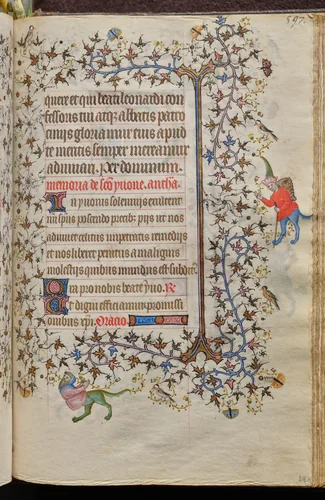 597.
quere et qui beati leonardi con
fessoris tui atq; abbatis patro
ciniis gloriamur eius apud
te meritis semper mereamur
adiuuari. per dominum
memoria de sco yuone. antha.
In yuonis solemnijs exultent
poscendo precib; pijs ut nos
adiuuet celitus impetratis remedijs
et nos liberet penitus a malignis
molestijs quibus mundus est subditus
Ora pro nobis beate yuo. R
Et digni efficiamur promissi
onibus xpi. Oratio